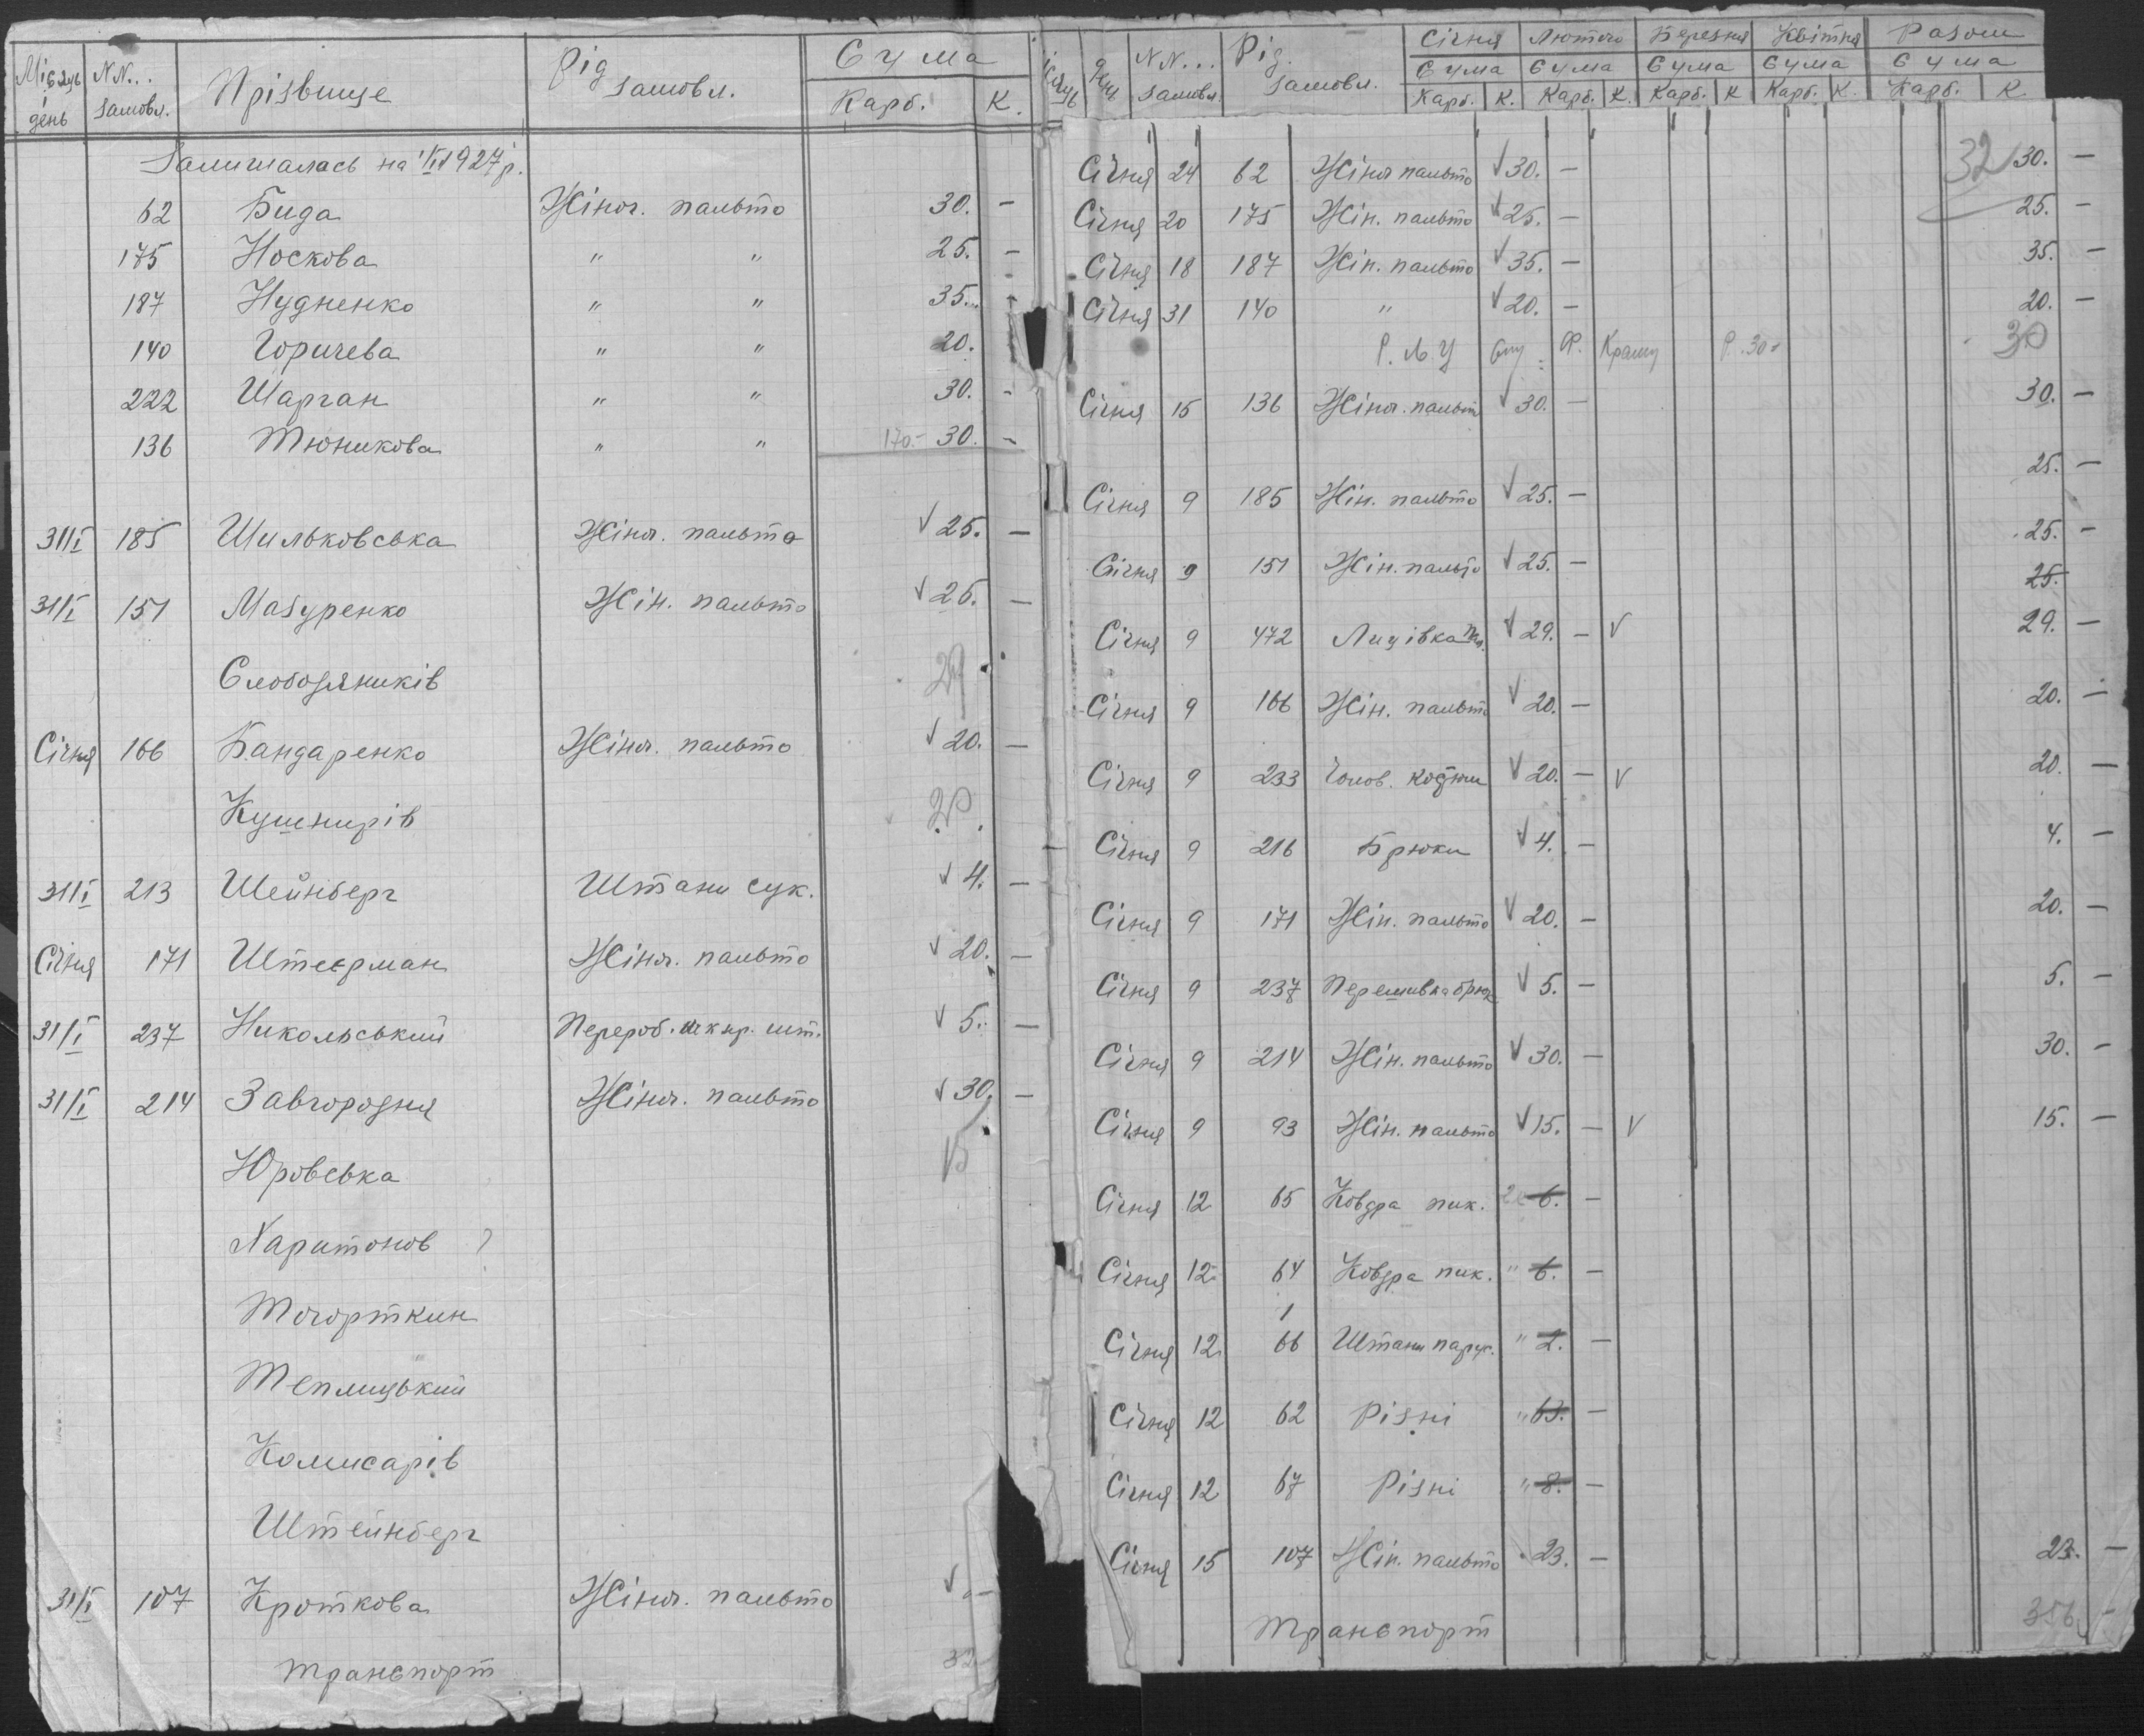 Місяць і день | NN.. замовл. | Прізвище | Рід замовл. | Сума Карб. | К.
Залишалась на 1/II 1927 р.
62 Бида Жіноч. пальто 30. —
175 Носкова " " 25. —
187 Нудненко " " 35. —
140 Горичева " " 20.
222 Шарган " " 30. -
136 Тюникова " " 170.- 30. -
31/I 185 Шильковська Жіноч. пальто √ 25. —
31/I 151 Мазуренко Жін. пальто √ 25. —
Слободяників 29
Січня 166 Бандаренко Жіноч. пальто √ 20. —
Кушнирів 20.
31/I 213 Шейнберг Штани сук. √ 4. —
Січня 171 Штеерман Жіноч. пальто √ 20. —
31/I 237 Никольський Перероб. шт. √ 5. —
31/I 214 Завгородня Жіноч. пальто √ 30. —
Юровська 15
Харитонов ?
Тогорткин
Теплицький
Комисарів
Штейнберг
31/I 107 Кроткова Жіноч. пальто √
Транспорт 32
день | NN... замовл. | Рід замовл. | Січня | Лютого | Березня | Квітня | Разом
Сума Сума Сума Сума Сума
Карб. К. Карб. К. Карб. К Карб. К. Карб. К.
Січня 24 62 Жіноч пальто √ 30. — 32 30. —
Січня 20 175 Жін. пальто √ 25. — 25. —
Січня 18 187 Жін. пальто √ 35. — 35. —
Січня 31 140 " √ 20. — 20. —
30
Січня 15 136 Жіноч. пальт √ 30. — 30. —
Січня 9 185 Жін. пальто √ 25. — 25. —
Січня 9 151 Жін. пальто √ 25. — 25. —
25.
Січня 9 472 Лицівка √ 29. — √ 29. —
Січня 9 166 Жін. пальто √ 20. — 20. —
Січня 9 233 Чолов. костюм √ 20. — √ 20. —
Січня 9 216 Брюки √ 4. — 4. —
Січня 9 171 Жін. пальто √ 20. — 20. —
Січня 9 237 Перешивка брюк √ 5. — 5. —
Січня 9 214 Жін. пальто √ 30. — 30. —
Січня 9 93 Жін. пальто √ 15. — √ 15. —
Січня 12 65 Ковдра пик. 6. —
Січня 12 64 Ковдра пик. " 6. —
1
Січня 12 66 Штани парус. " 2. —
Січня 12 62 Різні " 63. —
Січня 12 67 Різні " 8. —
Січня 15 107 Жін. пальто 23. — 23. —
Транспорт 356. —